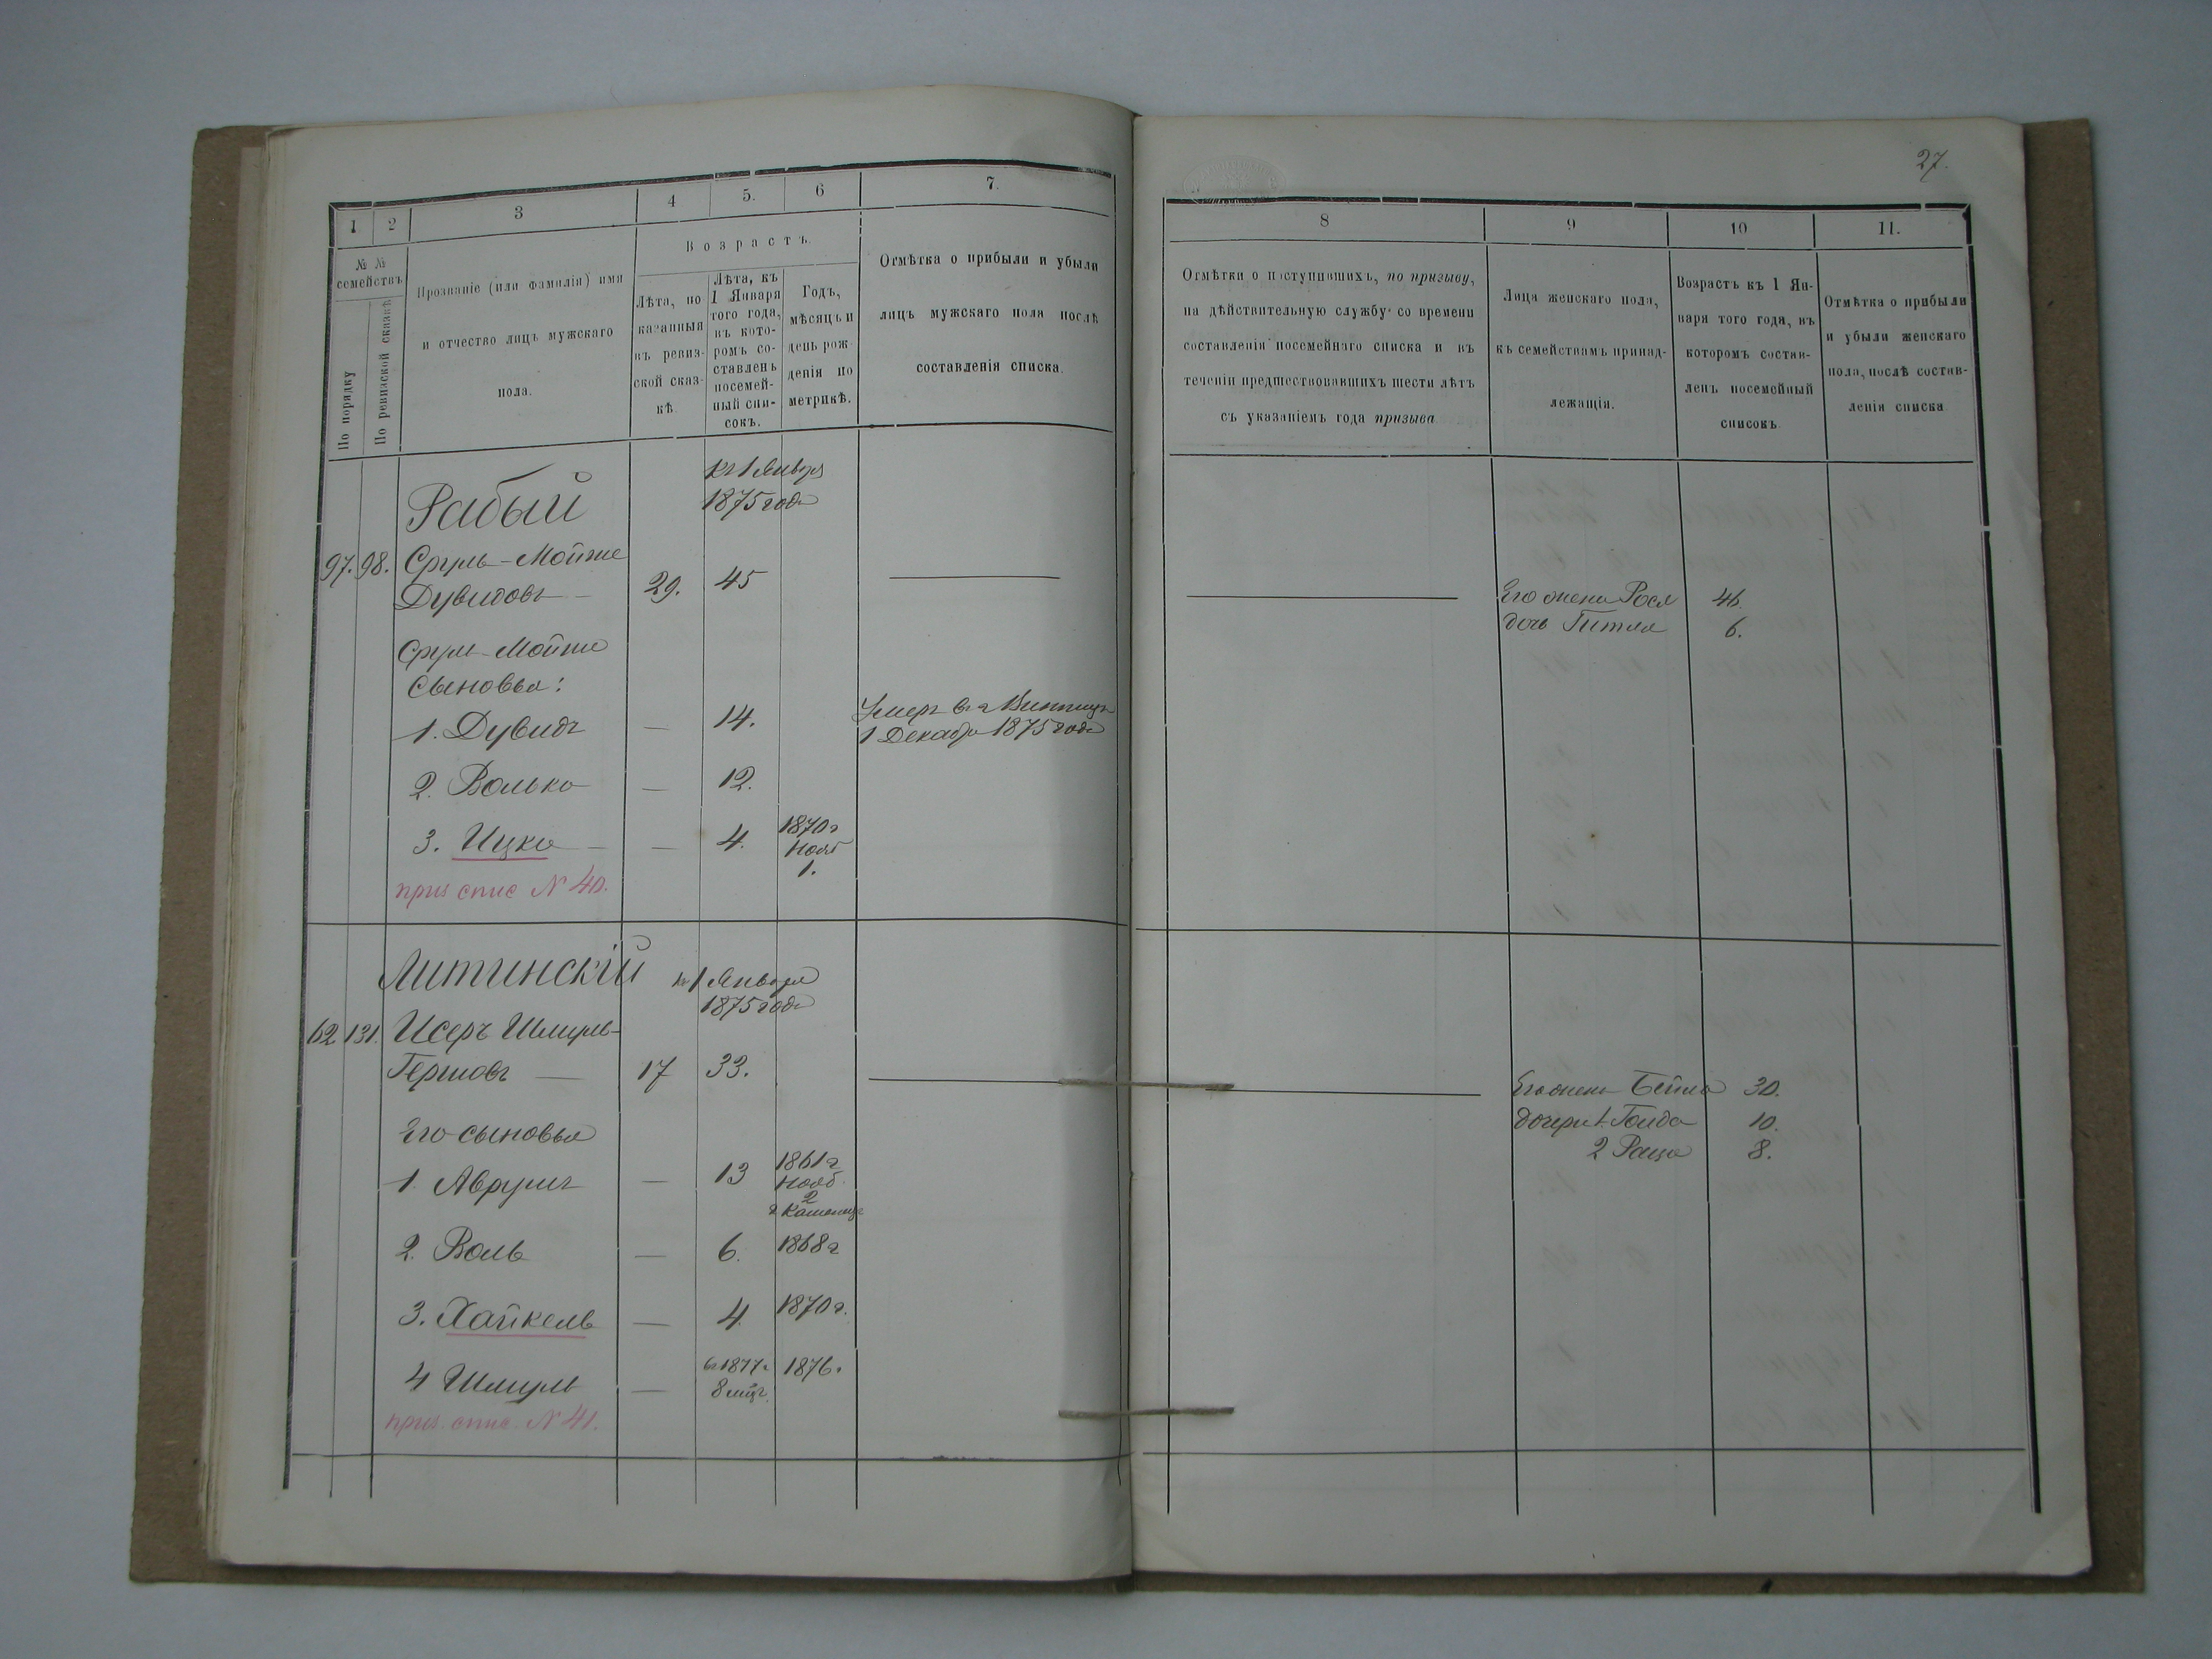 27.
1
2
3
4
5.
6
7.
№ №
семействъ
По порядку
По ревизской сказкѣ
Прозваніе (или фамилія) имя
и отчество лицъ мужскаго
пола.
Возрастъ.
Лѣта, по
казанныя
въ ревиз-
ской сказ-
кѣ.
Лѣта, къ
1 Января
того года,
въ кото-
ромъ со-
ставленъ
посемей-
ный спи-
сокъ.
Годъ,
мѣсяцъ и
день рож
денія по
метрикѣ.
Отмѣтка о прибыли и убыли
лицъ мужскаго пола послѣ
составленія списка.
8
9
10
11.
Отмѣтки о поступившихъ, по призыву,
на дѣйствительную службу со времени
составленія посемейнаго списка и въ
теченіи предшествовавшихъ шести лѣтъ
съ указаніемъ года призыва
Лица женскаго пола,
къ семействамъ принад-
лежащія.
Возрастъ къ 1 Ян-
варя того года, въ
которомъ состав-
ленъ посемейный
списокъ.
Отмѣтка о прибыли
и убыли женскаго
пола, послѣ состав-
ленія списка
Рабый
къ 1 Января
1875 года
97. 98. Сруль-Мойше
Дувидовъ 29. 45
Его жена Рося 46.
дочь Гитля 6.
Сруль-Мойше
Сыновья:
1. Дувидъ — 14. Умеръ въ г Винницѣ
1 Декабря 1875 года
2. Волько — 12.
3. Ицко — 4. 1870 г
Нояб
1.
приз спис № 40.
Литинскій
къ 1 Января
1875 года
62 131. Исеръ Шмуль-
Гершовъ 17 33.
Его жена Бейла 30.
дочери 1. Голда 10.
2 8.
Его сыновья
1. Аврумъ — 13 1861 г
Нояб.
2
2. Воль — 6. 1868 г
3. Хайкель — 4. 1870 г.
4 Шмуль — въ 1877 г. 1876 г.
8 мѣц.
приз. спис. № 41.